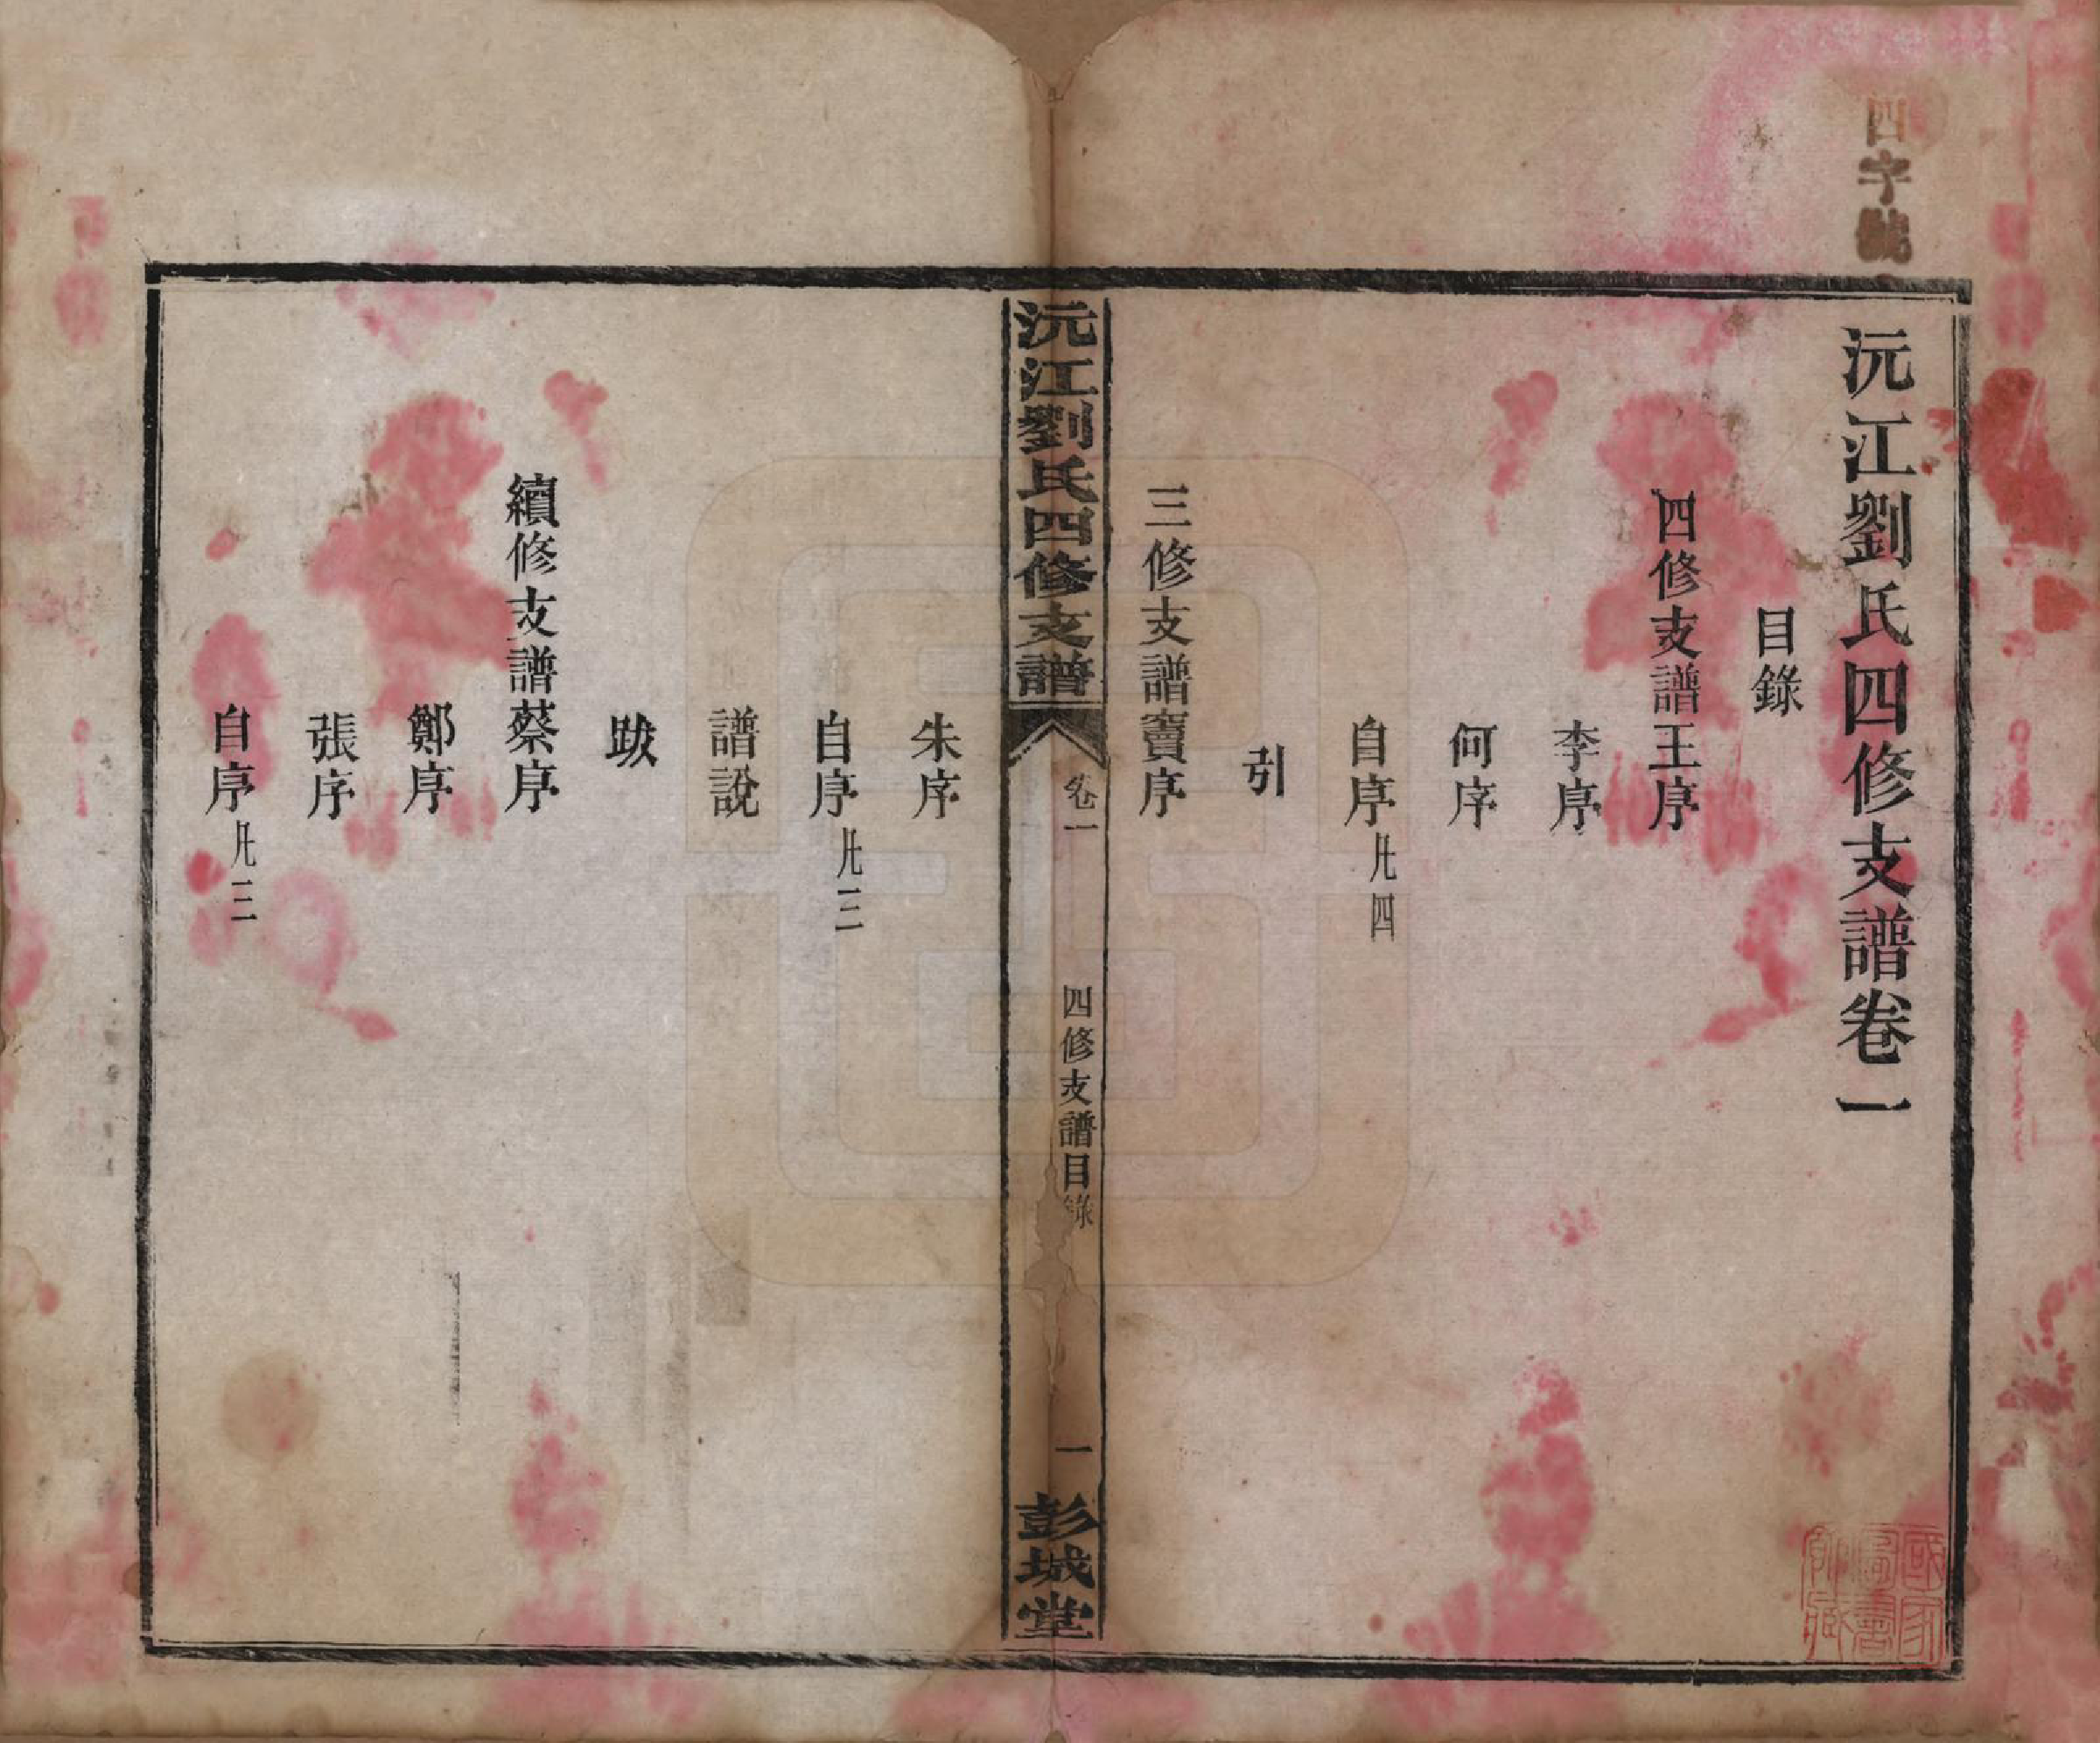 四字號
沅江劉氏四修支譜卷一
目錄
四修支譜王序
李序
何序
自序凡四
引
三修支譜竇序
沅江劉氏四修支譜
卷一
四修支譜目錄
一
彭城堂
朱序
自序凡三
譜說
跋
續修支譜蔡序
鄭序
張序
自序凡三
國家
圖書
館藏